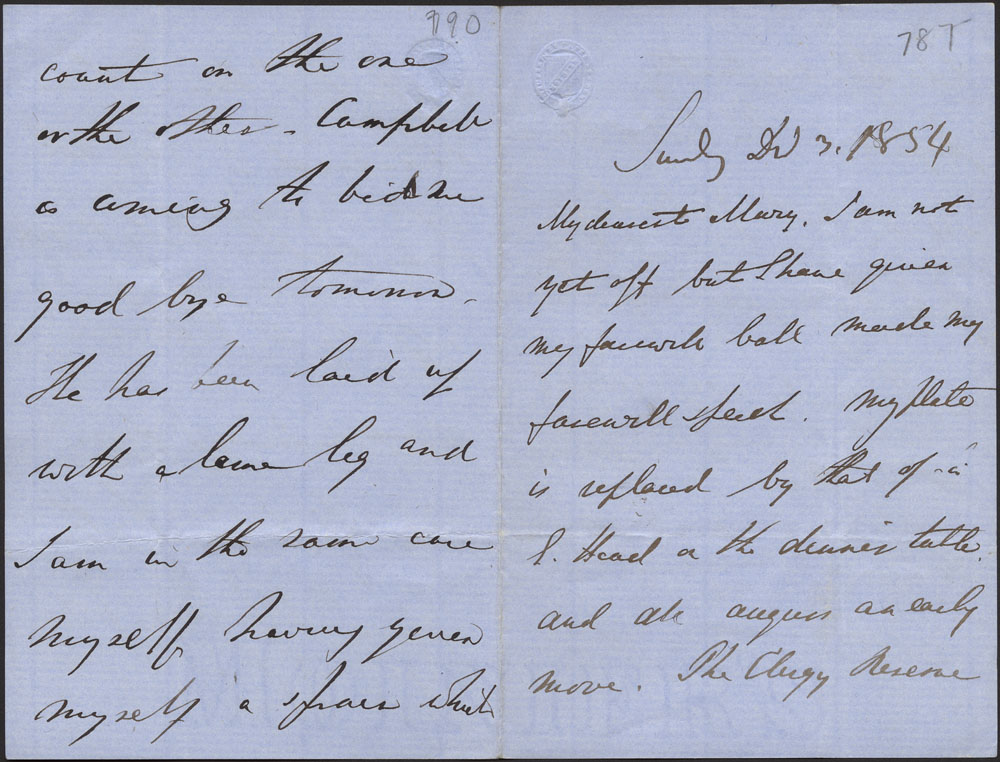 790
count on the one
or the other - Campbell
is coming to bid me
good bye tomorrow -
He has been laid up
with a lame leg and
I am in the same case
myself, having given
myself a sprain which
787
Sunday Dec 3. 1854
My dearest Mary, I am not
yet off but I have given
my farewell ball made my
farewell speech. My plate
is replaced by that of
E. Head on the dinner table.
and all augurs an early
move. The Clergy Reserve